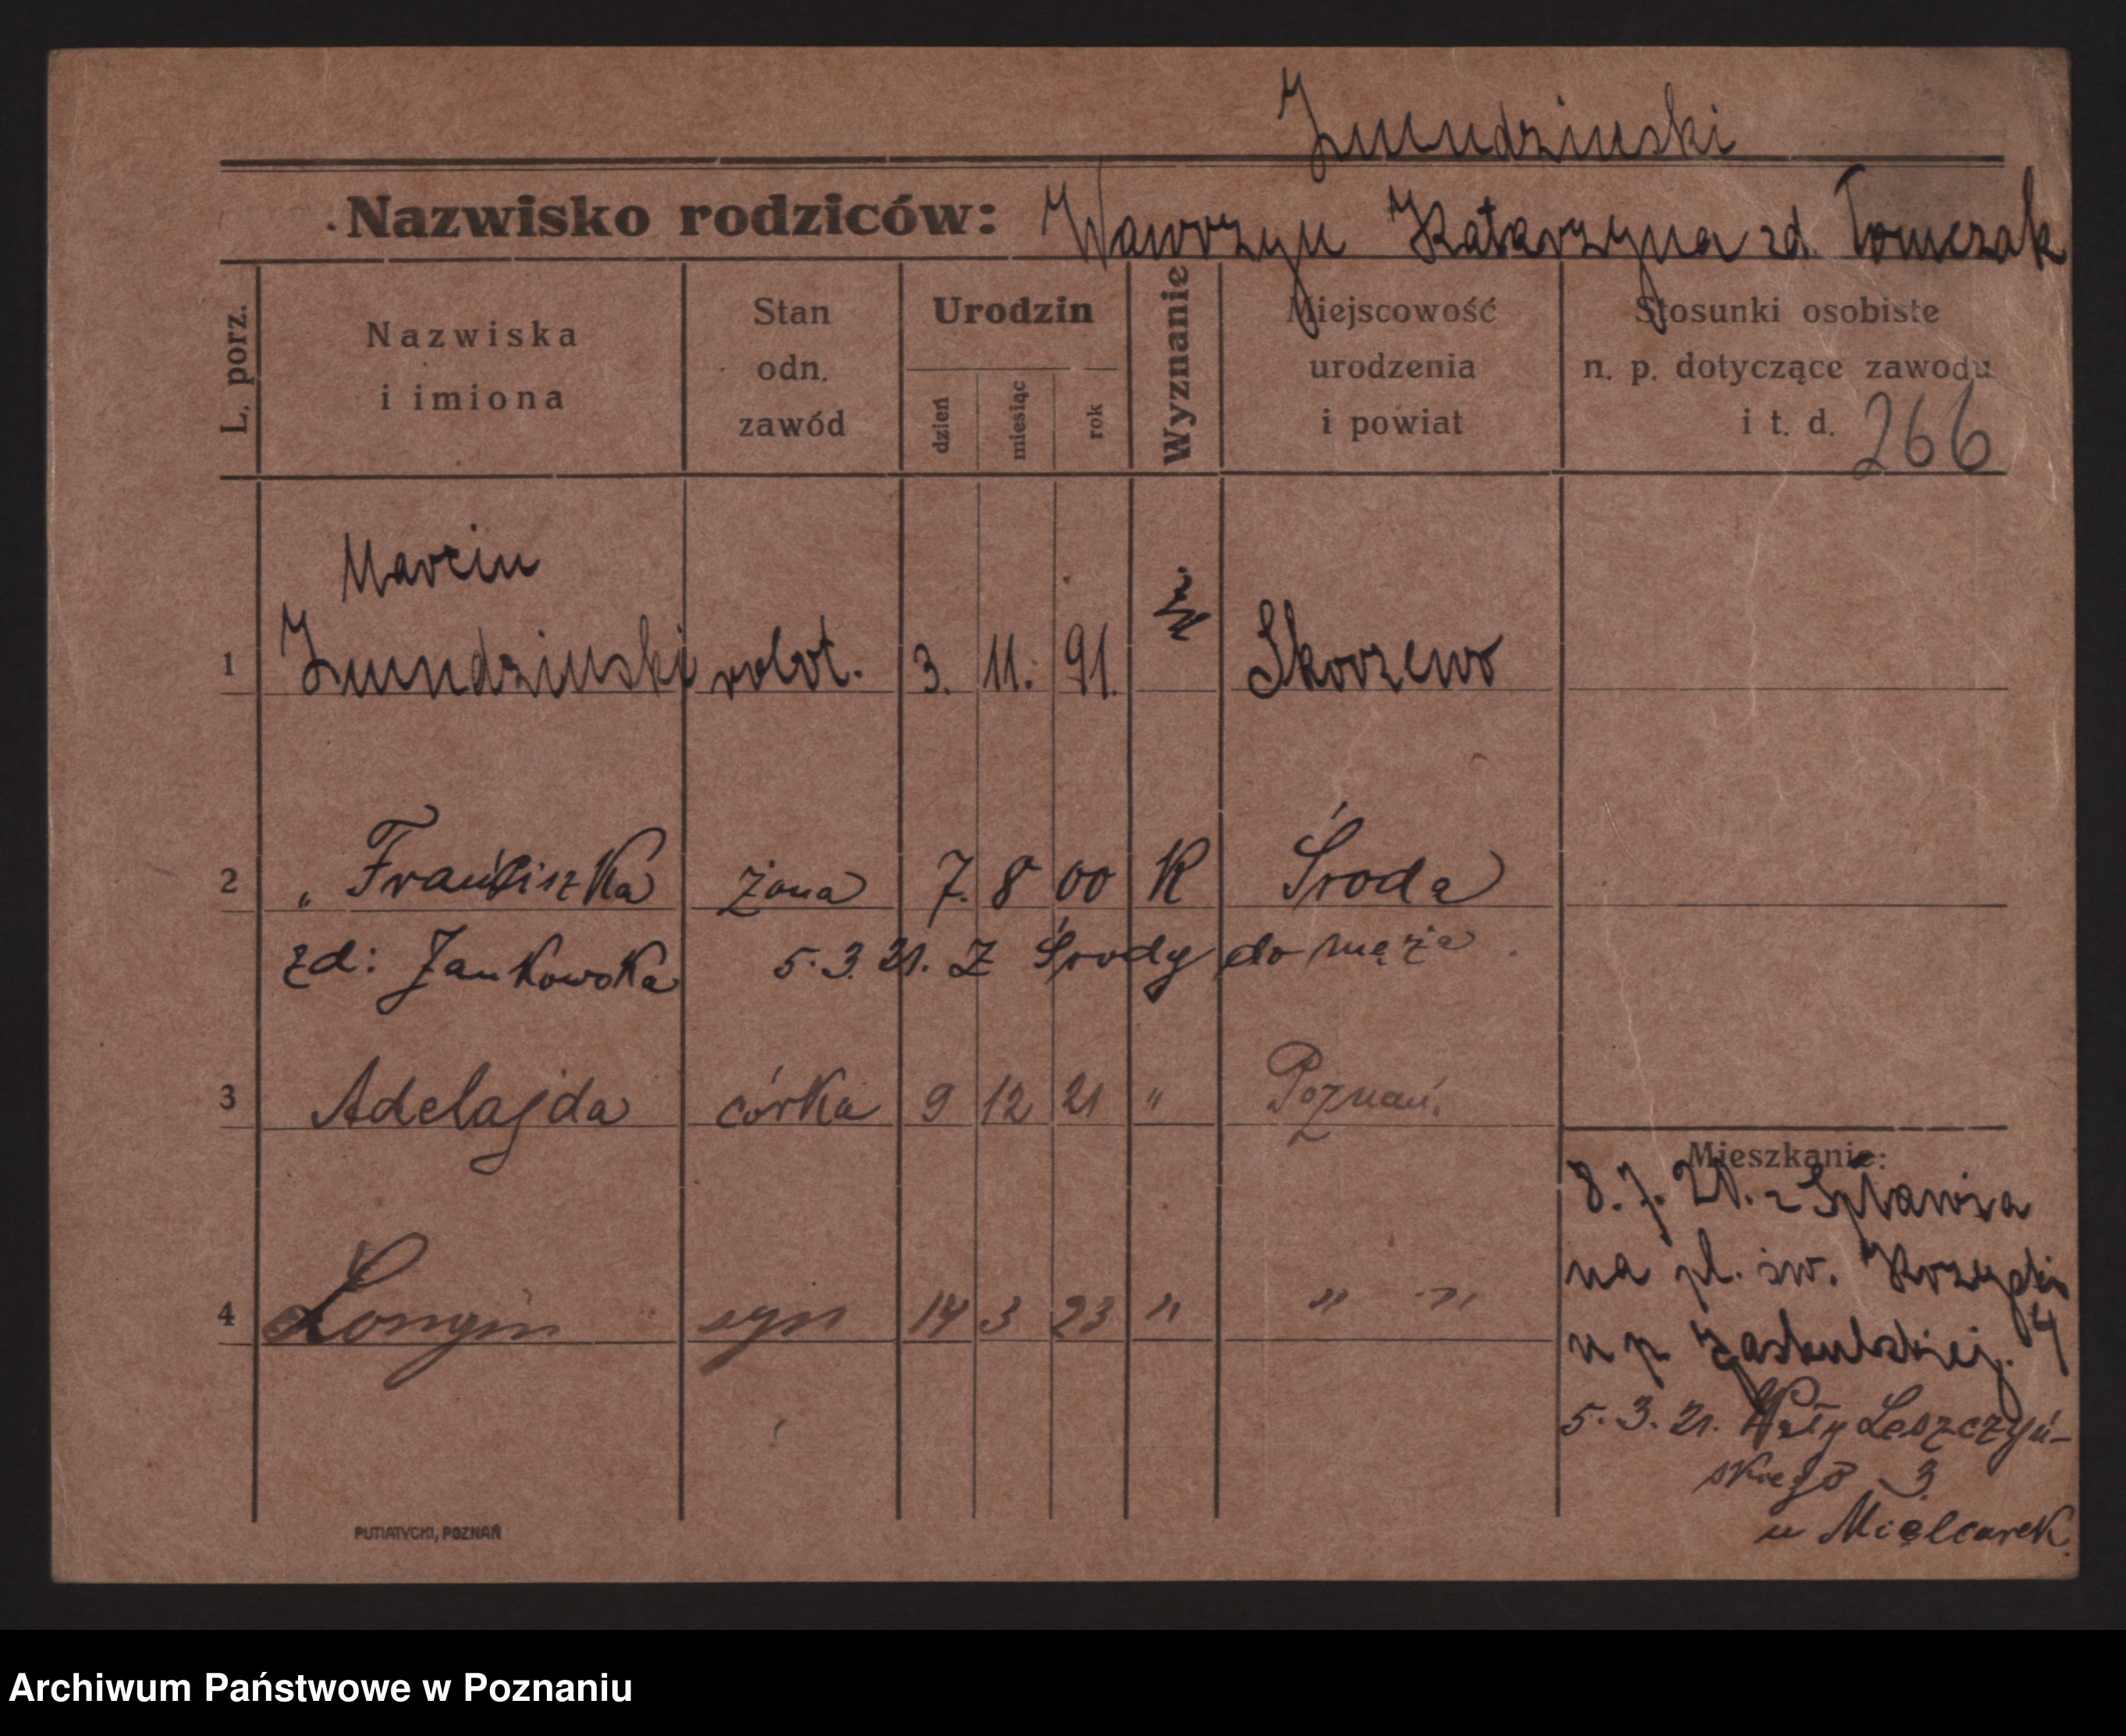 Zmudzinski
Nazwisko rodziców: Wawrzyn Katarzyna zd. Tomczak
L. porz.
Nazwiska
i imiona
Stan
odn.
zawód
Urodzin
dzień
miesiąc
rok
Wyznanie
Miejscowość
urodzenia
i powiat
Stosunki osobiste
n. p. dotyczące zawodu
i t. d. 266
Marcin
1 Zmudzinski robot. 3. 11. 91. Skorzewo
2 „ Franciszka żona 7. 8 00 K Środa
zd: Jankowska 5.3.21. Z Środy do męża.
3 Adelajda córka 9 12 21 " Poznań
Mieszkanie:
8. 7. 20. z
na pl. św. 4
u p.
4 Longin syn 14 3 23 " " "
5. 3. 21. Wały Leszczyń-
skiego 3
u Mielcarek.
PUTIATYCKI, POZNAŃ
Archiwum Państwowe w Poznaniu